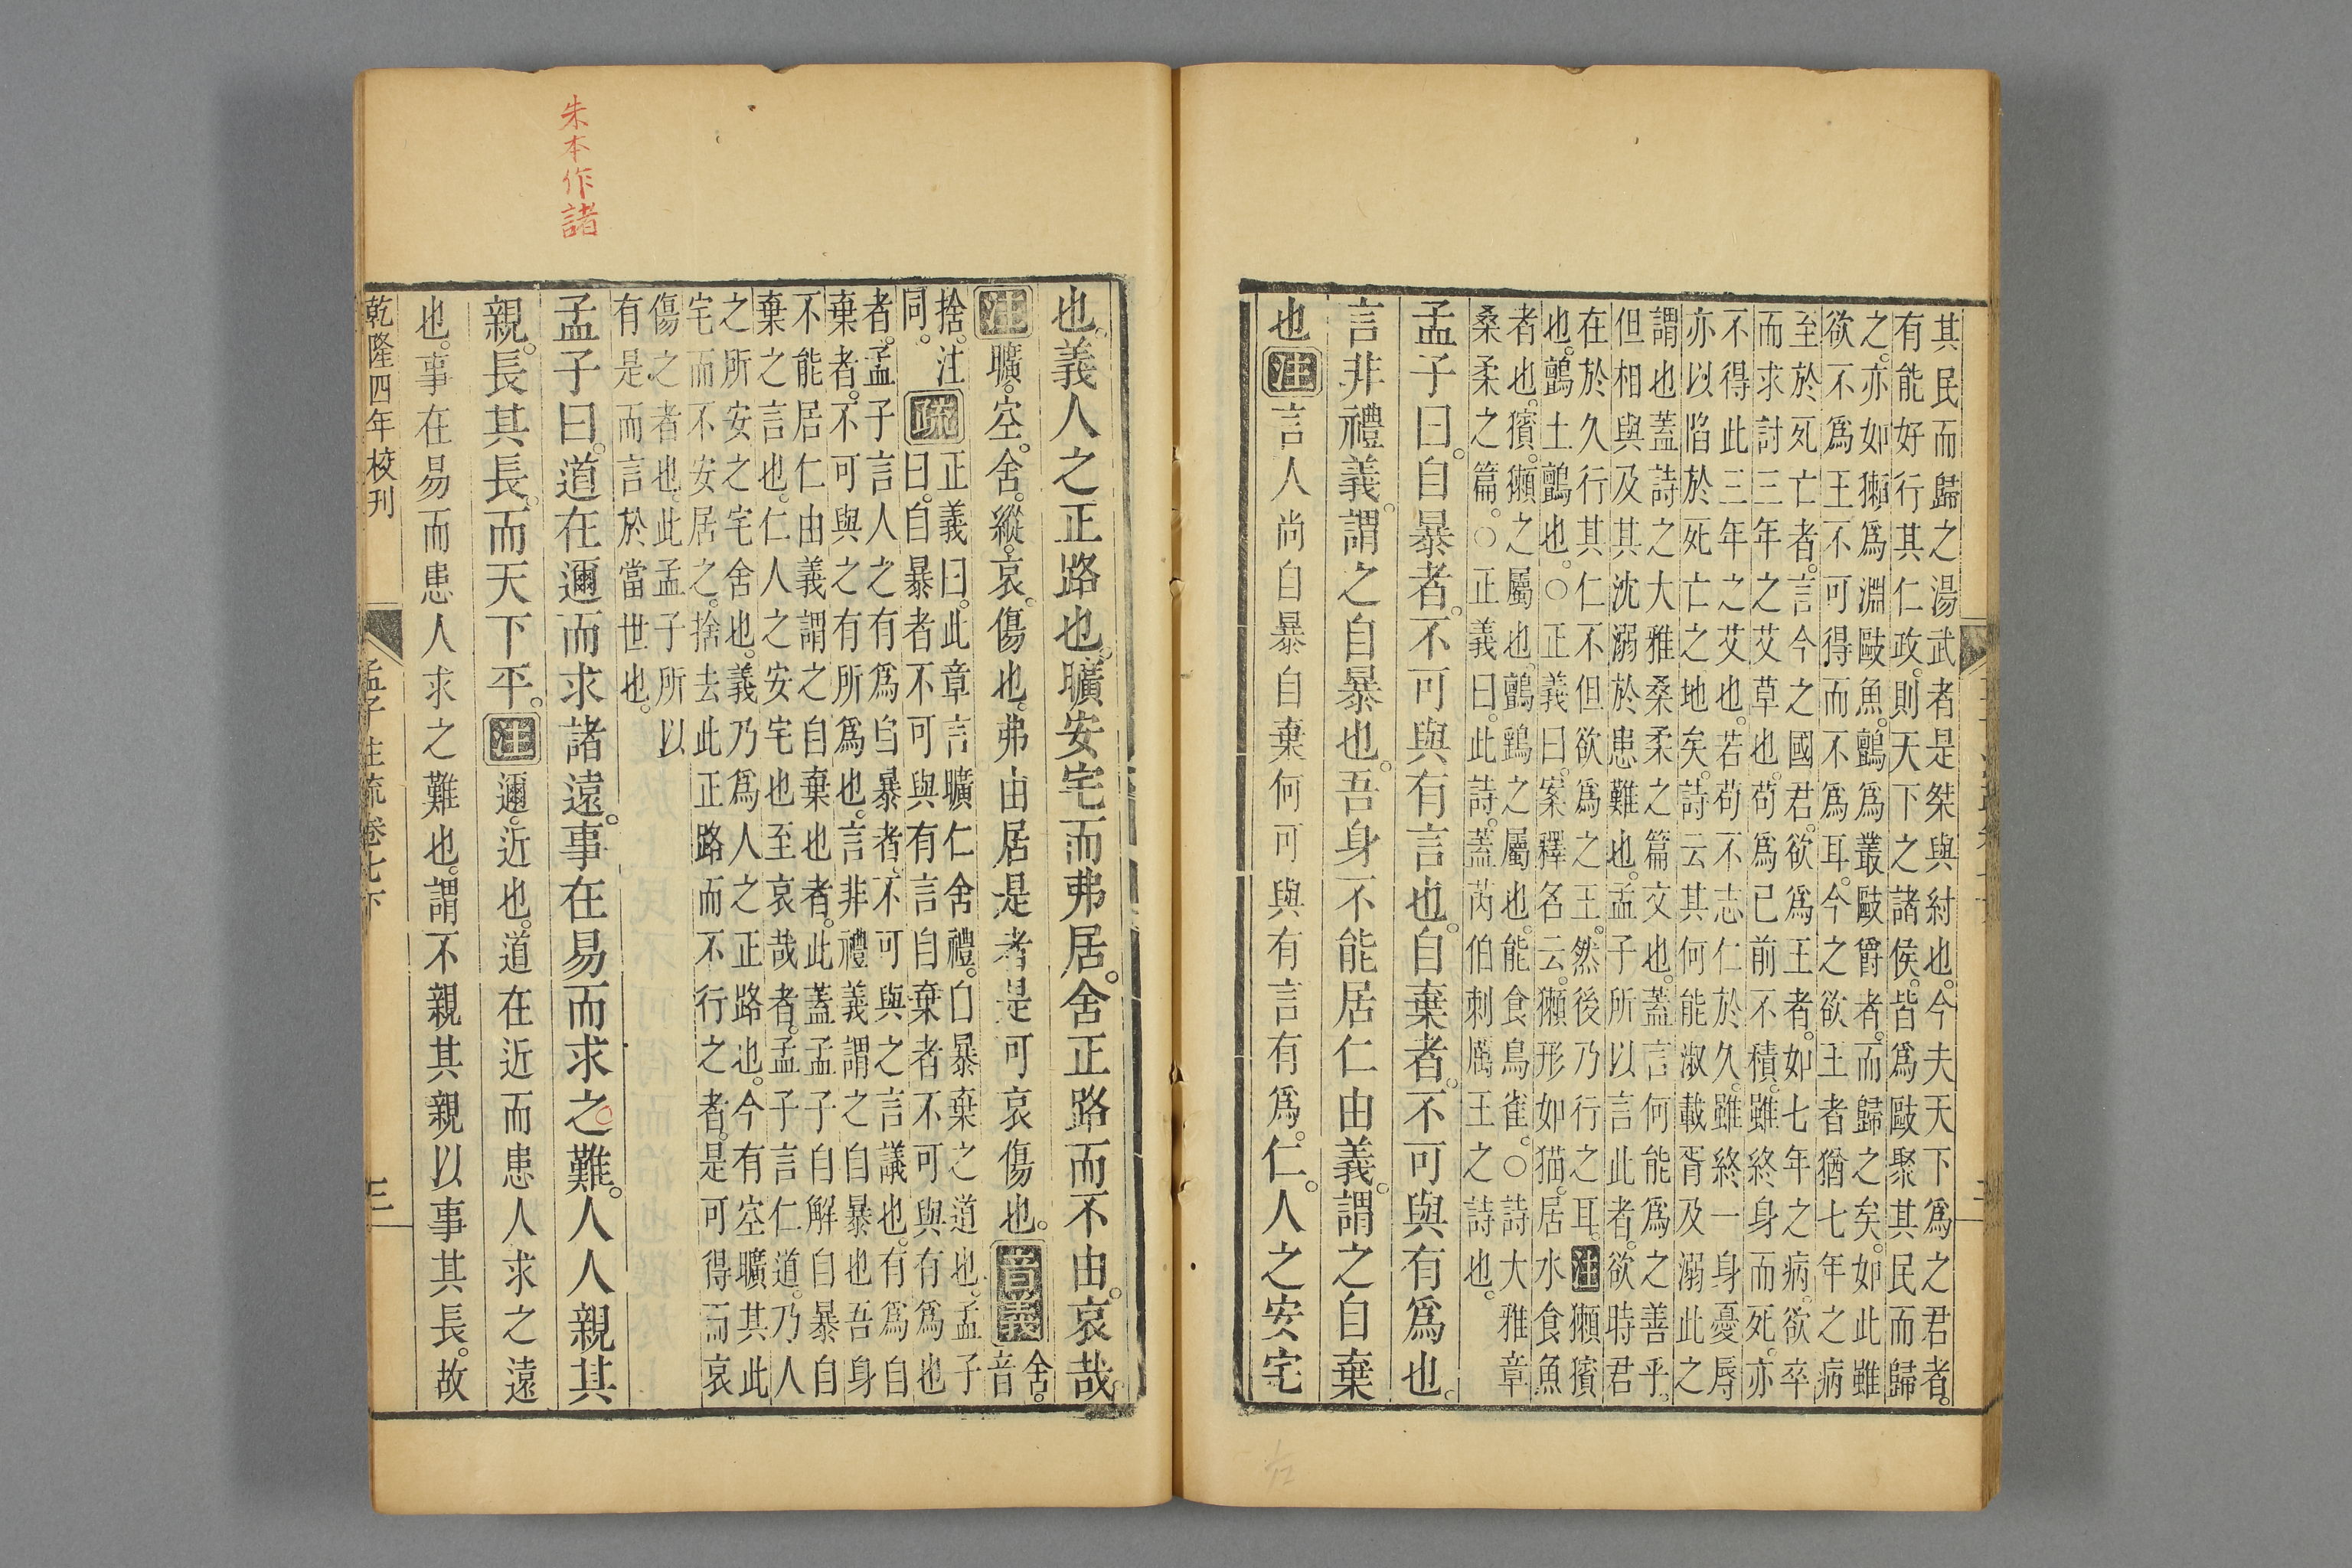 其民而歸之湯武者是桀與紂也。今夫天下爲之君者。
有能好行其仁政。則天下之諸侯。皆爲敺聚其民而歸
之。亦如獺爲淵敺魚。鸇爲叢敺爵者。而歸之矣。如此雖
欲不爲王不可得而不爲耳。今之欲王者猶七年之病
至於死亡者。言今之國君。欲爲王者。如七年之病。欲卒
而求討三年之艾草也。苟爲已前不積。雖終身而死。亦
不得此三年之艾也。若苟不志仁於久。雖終一身憂辱
亦以陷於死亡之地矣。詩云其何能淑載胥及溺此之
謂也蓋詩之大雅桑柔之篇文也。蓋言何能爲之善乎。
但相與及其沈溺於患難也。孟子所以言此者。欲時君
在於久行其仁不但欲爲之王。然後乃行之耳。注獺獱
也。鸇土鸇也。○正義曰。案釋名云。獺形如猫。居水食魚
者也。獱。獺之屬也。鸇鷂之屬也。能食鳥雀。○詩大雅章
桑柔之篇。○正義曰。此詩。蓋芮伯刺厲王之詩也。
孟子曰。自暴者。不可與有言也。自棄者。不可與有爲也。
言非禮義。謂之自暴也。吾身不能居仁由義。謂之自棄
也注言人尚自暴自棄何可與有言有爲。仁。人之安宅
也。義人之正路也。曠安宅而弗居。舍正路而不由。哀哉。
注曠。空。舍。縱。哀。傷也。弗由居是者是可哀傷也。音義舍。音
捨。注
同。疏正義曰。此章言曠仁舍禮。自暴棄之道也。孟子
曰。自暴者不可與有言自棄者不可與有爲也
者。孟子言人之有爲自暴者。不可與之言議也。有爲自
棄者。不可與之有所爲也。言非禮義謂之自暴也吾身
不能居仁由義謂之自棄也者。此蓋孟子自解自暴自
棄之言也。仁人之安宅也至哀哉者。孟子言仁道。乃人
之所安之宅舍也。義乃爲人之正路也。今有空曠其此
宅而不安居之。捨去此正路而不行之者。是可得而哀
傷之者也。此孟子所以
有是而言於當世也。
孟子曰。道在邇而求諸遠。事在易而求之難。人人親其
親。長其長。而天下平。注邇。近也。道在近而患人求之遠
也。事在易而患人求之難也。謂不親其親以事其長。故
乾隆四年校刊
孟子注疏卷七下
三
朱本作諸